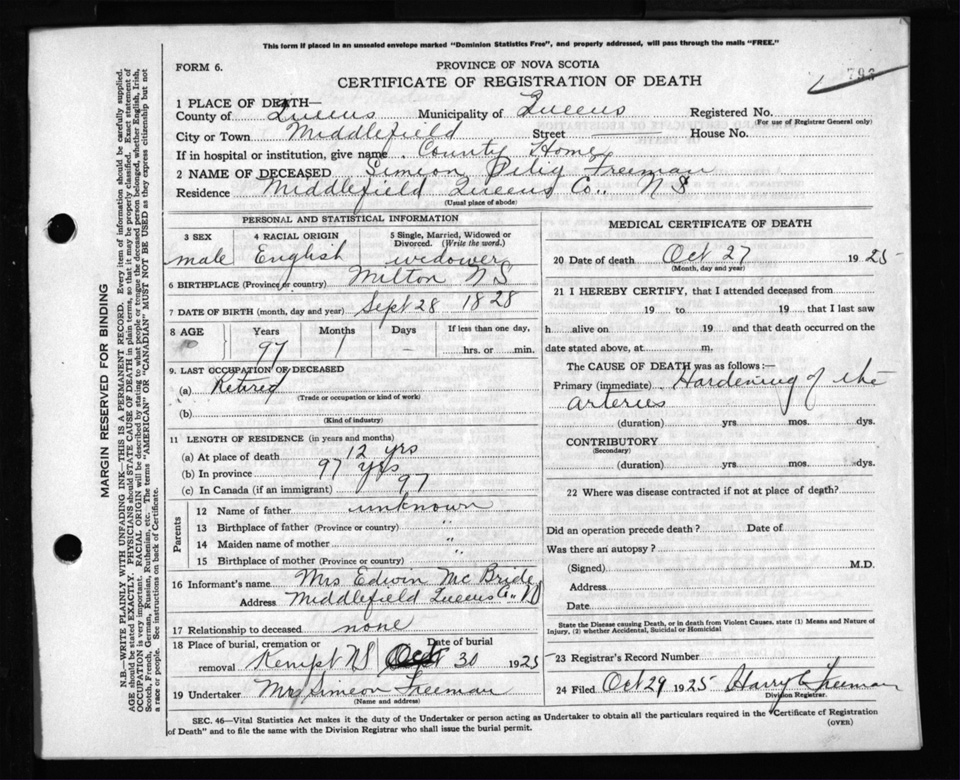 This form if placed in an unsealed envelope marked "Dominion Statistics Free", and properly addressed, will pass through the mails "FREE."
FORM 6.
PROVINCE OF NOVA SCOTIA
CERTIFICATE OF REGISTRATION OF DEATH
1 PLACE OF DEATH—
County of Queens Municipality of Queens Registered No.
(For use of Registrar General only)
City or Town Middlefield Street House No.
If in hospital or institution, give name County Home
2 NAME OF DECEASED Simeon Freeman
Residence Middlefield Queens Co., NS
(Usual place of abode)
PERSONAL AND STATISTICAL INFORMATION
3 SEX 4 RACIAL ORIGIN 5 Single, Married, Widowed or Divorced. (Write the word.)
male English widower
6 BIRTHPLACE (Province or country) Milton NS
7 DATE OF BIRTH (month, day and year) Sept 28 1828
8 AGE Years Months Days If less than one day,
97 1 - hrs. or min.
9. LAST OCCUPATION OF DECEASED
(a) Retired
(Trade or occupation or kind of work)
(b)
(Kind of industry)
11 LENGTH OF RESIDENCE (in years and months)
(a) At place of death 12 yrs
(b) In province 97 yrs
(c) In Canada (if an immigrant) 97
Parents
12 Name of father unknown
13 Birthplace of father (Province or country) "
14 Maiden name of mother "
15 Birthplace of mother (Province or country) "
16 Informant's name Mrs Edwin McBride
Address Middlefield Queens Co., NS
17 Relationship to deceased none
18 Place of burial, cremation or removal Kempt NS Date of burial Oct 30 1925
19 Undertaker Mrs Simeon Freeman
(Name and address)
MEDICAL CERTIFICATE OF DEATH
20 Date of death Oct 27 1925
(Month, day and year)
21 I HEREBY CERTIFY, that I attended deceased from
19 to 19 that I last saw
h alive on 19 and that death occurred on the
date stated above, at m.
The CAUSE OF DEATH was as follows:—
Primary (immediate) Hardening of the
arteries
(duration) yrs. mos. dys.
CONTRIBUTORY
(Secondary)
(duration) yrs. mos. dys.
22 Where was disease contracted if not at place of death?
Did an operation precede death? Date of
Was there an autopsy?
(Signed) M.D.
Address
Date
State the Disease causing Death, or in death from Violent Causes, state (1) Means and Nature of
Injury, (2) whether Accidental, Suicidal or Homicidal
23 Registrar's Record Number
24 Filed Oct 29 1925 Harry C Freeman
Division Registrar.
SEC. 46—Vital Statistics Act makes it the duty of the Undertaker or person acting as Undertaker to obtain all the particulars required in the "Certificate of Registration
of Death" and to file the same with the Division Registrar who shall issue the burial permit.
(OVER)
MARGIN RESERVED FOR BINDING
N.B.—WRITE PLAINLY WITH UNFADING INK—THIS IS A PERMANENT RECORD. Every item of information should be carefully supplied.
AGE should be stated EXACTLY. PHYSICIANS should STATE CAUSE OF DEATH in plain terms, so that it may be properly classified. Exact statement of
OCCUPATION is very important. RACIAL ORIGIN will be described by stating to what people or tongue the deceased person belonged, whether English, Irish,
Scotch, French, German, Russian, Ruthenian, etc. The terms "AMERICAN" OR "CANADIAN" MUST NOT BE USED as they express citizenship but not
a race or people. See instructions on back of Certificate.